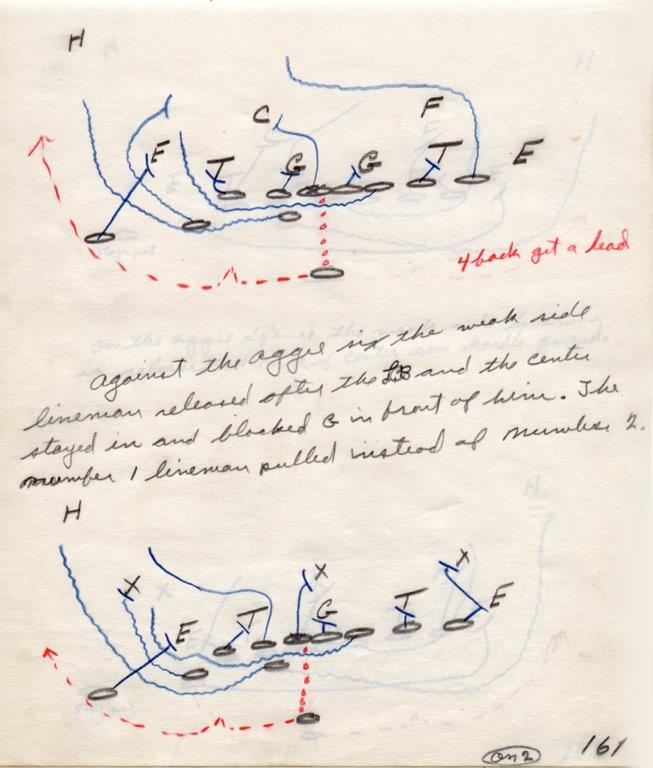 H
C F
E T G G T E
4 back get a lead
Against the aggie six the weak side
lineman released after the LB and the center
stayed in and blocked G in front of him. The
number 1 lineman pulled instead of number 2.
H
X X X
E T G T E
on 2 161